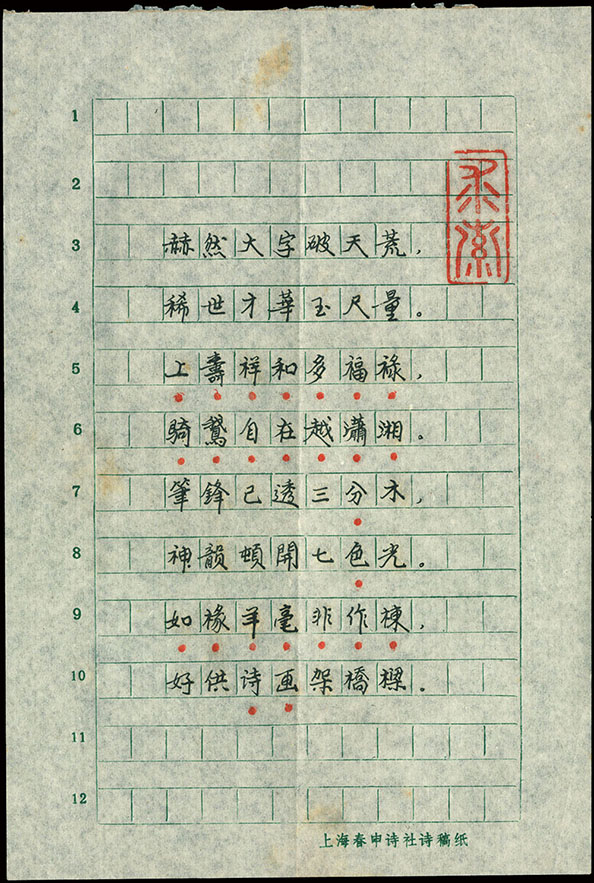 1
2
3 赫然大字破天荒，
4 稀世才華玉尺量。
5 上壽祥和多福祿，
6 騎鵞自在越瀟湘。
7 筆鋒已透三分木，
8 神韻頓開七色光。
9 如椽羊毫非作棟，
10 好供诗画架橋樑。
11
12
上海春申诗社诗稿纸